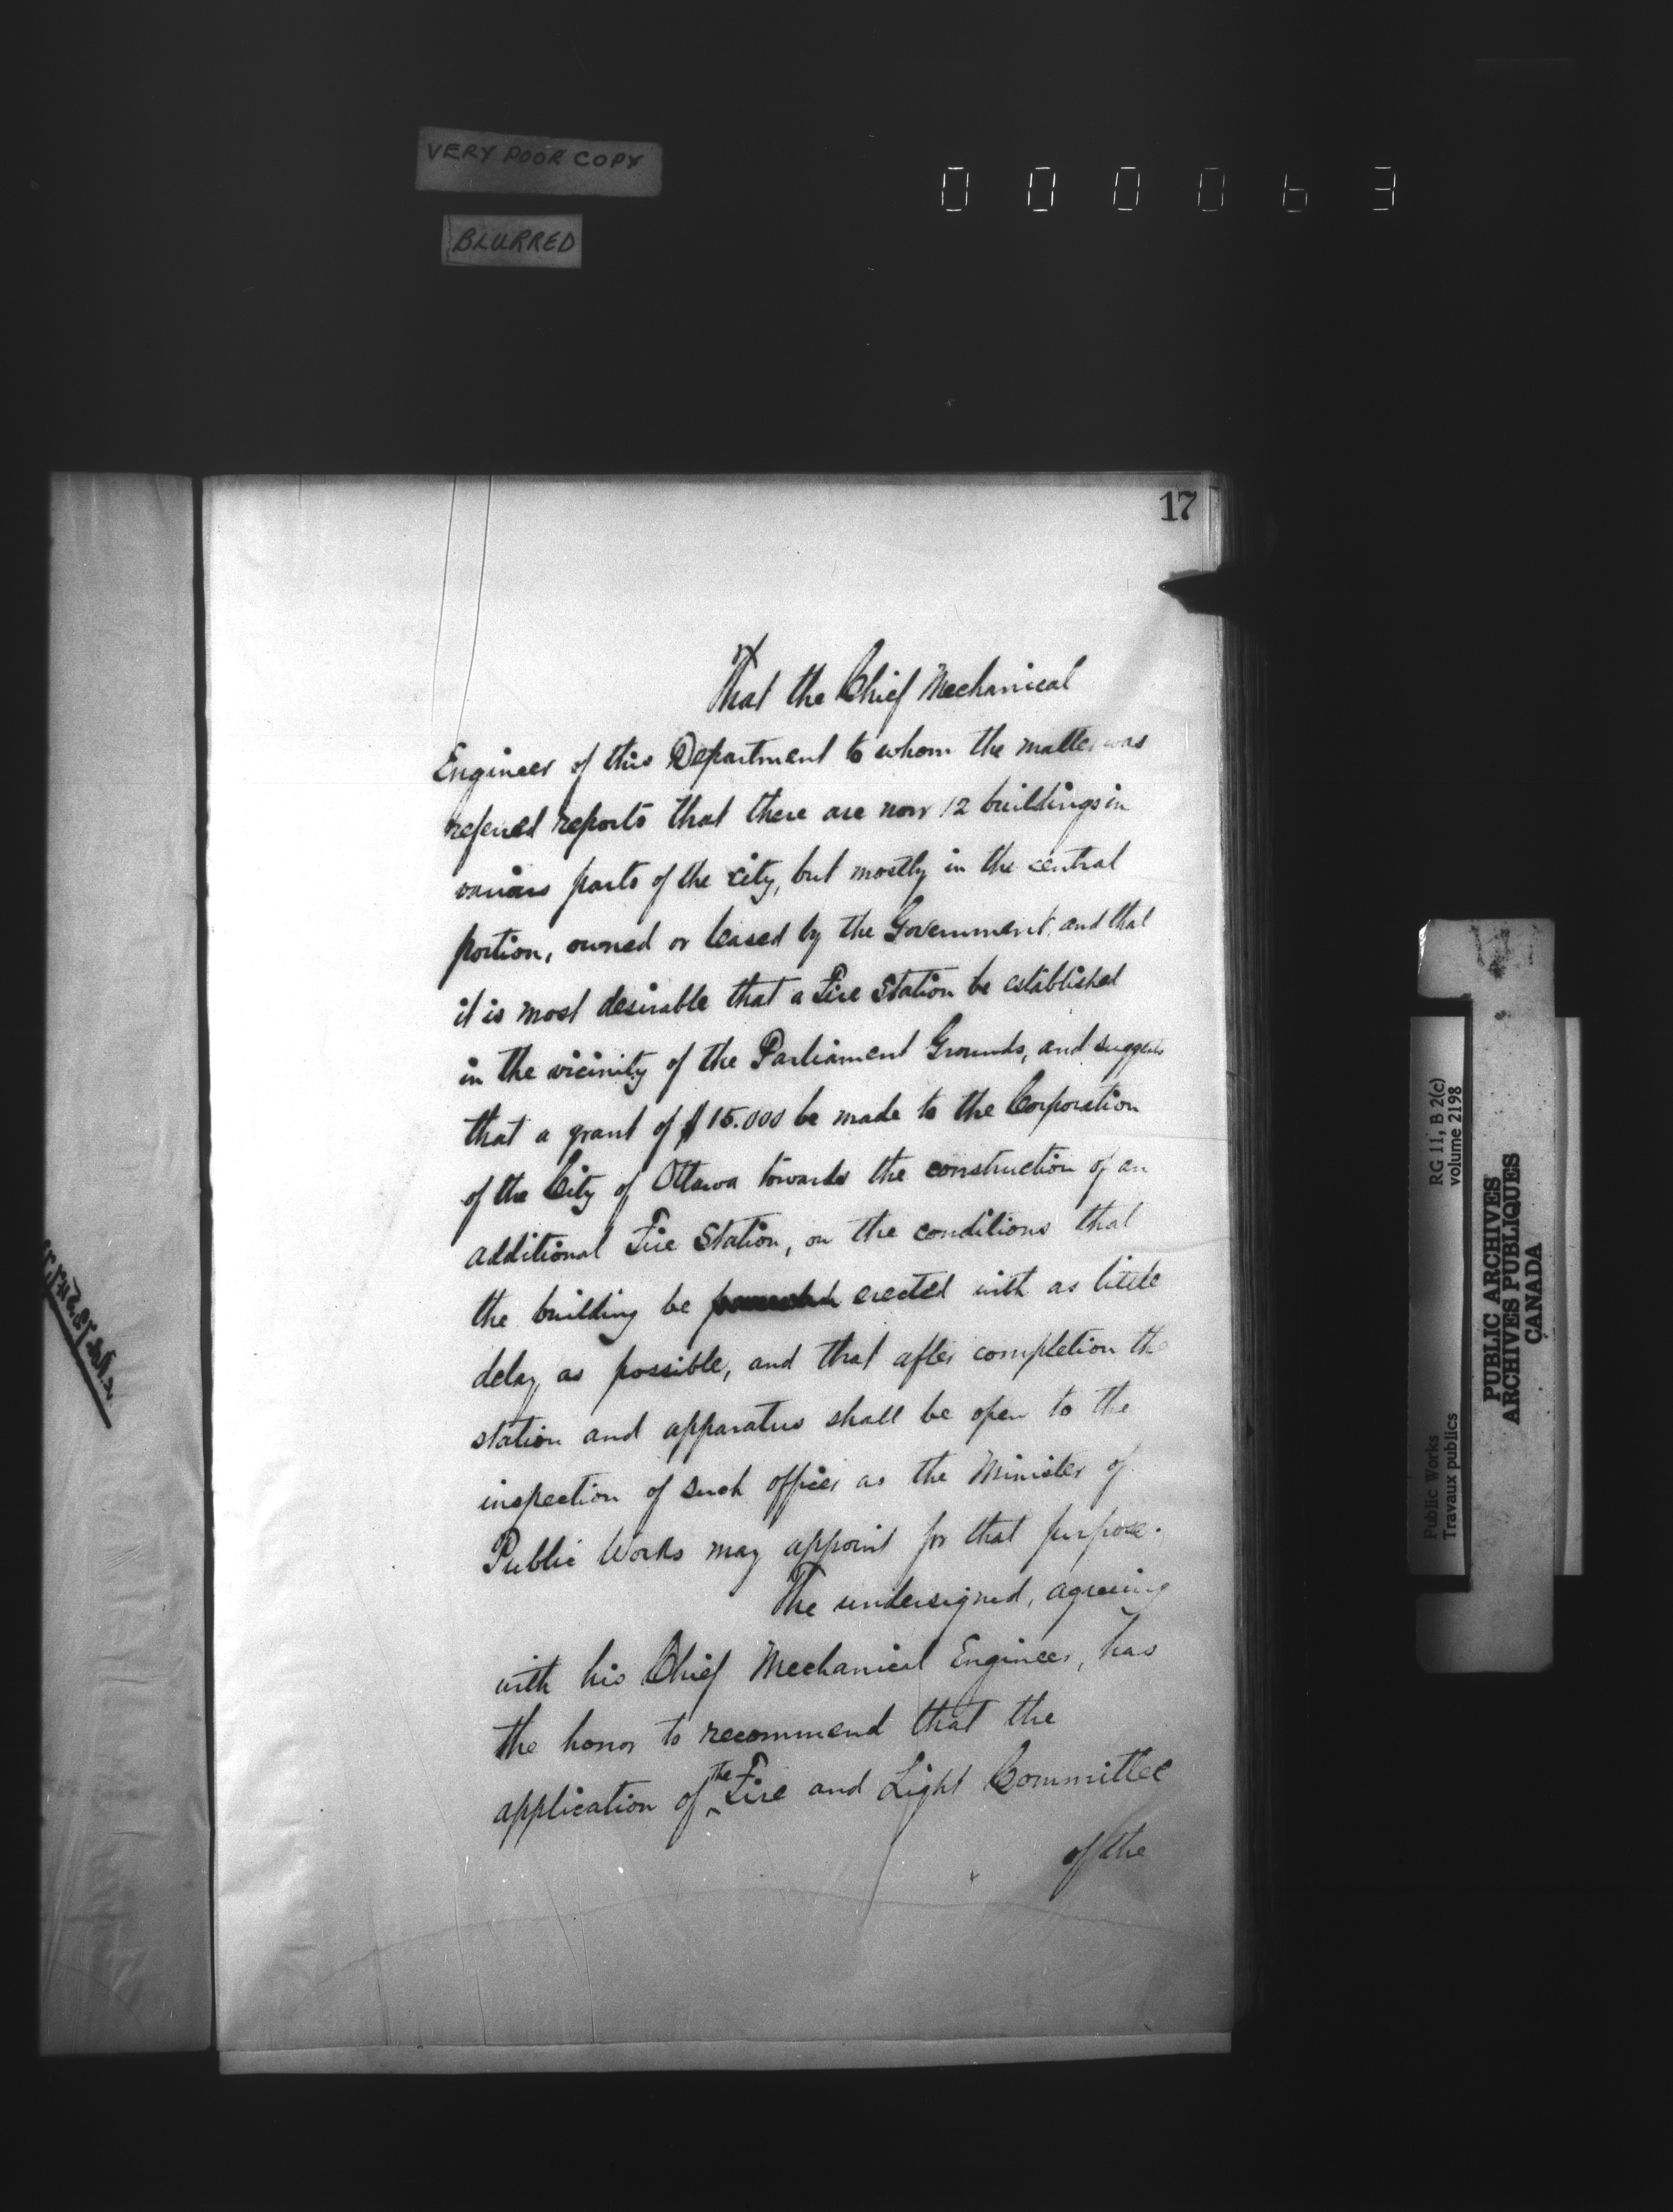 VERY POOR COPY
BLURRED
000063
17
That the Chief Mechanical
Engineer of this Department to whom the matter was
referred reports that there are now 12 buildings in
various parts of the city, but mostly in the central
portion, owned or leased by the Government, and that
it is most desirable that a Fire Station be established
in the vicinity of the Parliament Grounds, and suggests
that a grant of $15.000 be made to the Corporation
of the City of Ottawa towards the construction of an
additional Fire Station, on the conditions that
the building be erected with as little
delay as possible, and that after completion the
station and apparatus shall be open to the
inspection of such officer as the Minister of
Public Works may appoint for that purpose.
The undersigned, agreeing
with his Chief Mechanical Engineer, has
the honor to recommend that the
application of the Fire and Light Committee
of the
Public Works
Travaux publics
RG 11, B 2(c)
volume 2198
PUBLIC ARCHIVES
ARCHIVES PUBLIQUES
CANADA